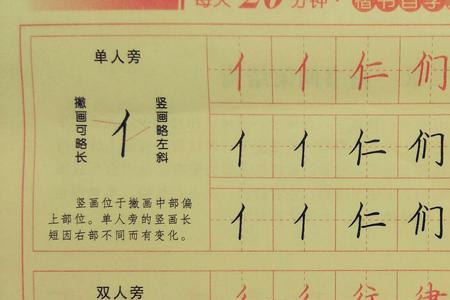 每天20分钟·楷书自学
单人旁
撇画可略长
竖画略左斜
亻
竖画位于撇画中部偏
上部位。单人旁的竖画长
短因右部不同而有变化。
亻亻仁们
亻亻仁们
亻亻仁们
双人旁
彳彳往律